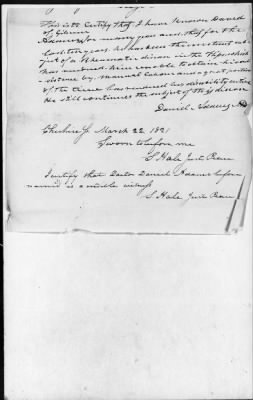 This is to Certify that I have known David
of Gilsum
Adams for many years and that for the
last ten years he has been the constant sub
ject of a Rheumatic disease in the Hips which
has rendered him unable to obtain his sub
sistence by manual labour and a great portion
of the time has rendered his disability entire
He still continues the subject of the disease
Daniel Adams MD
Cheshire ss March 22 1821
Sworn to before me
S Hale Just. Peace
I certify that Doctor Daniel Adams before
named is a credible witness
S. Hale Just. Peace